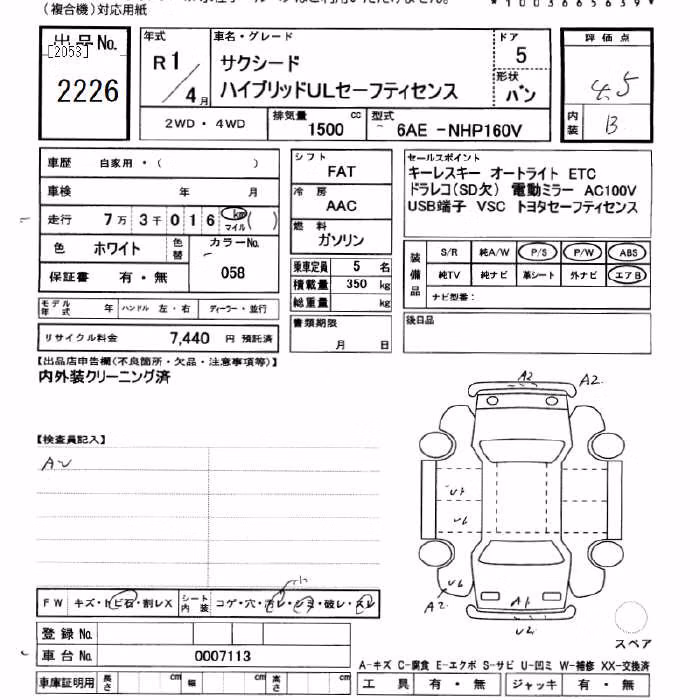 (複合機)対応用紙
*1003665639*
出品No.
[2053]
2226
年式
R1/4月
車名・グレード
サクシード
ハイブリッドULセーフティセンス
ドア
5
形状
バン
評価点
4.5
内装
B
2WD・4WD
排気量
1500 cc
型式
6AE -NHP160V
車歴 自家用・( )
車検 年 月
走行 7万3千016 km マイル ( )
色 ホワイト 色替
カラーNo.
058
保証書 有・無
モデル年式 年 ハンドル 左・右 ディーラー・並行
リサイクル料金 7,440 円 預託済
シフト
FAT
冷房
AAC
燃料
ガソリン
乗車定員 5 名
積載量 350 kg
総重量 kg
書類期限
月 日
セールスポイント
キーレスキー オートライト ETC
ドラレコ(SD欠) 電動ミラー AC100V
USB端子 VSC トヨタセーフティセンス
装備品
S/R 純A/W P/S P/W ABS
純TV 純ナビ 革シート 外ナビ エアB
ナビ型番:
後日品
【出品店申告欄(不良箇所・欠品・注意事項等)】
内外装クリーニング済
【検査員記入】
AU
A2 A2
U1
U2
U2
A2
A1
U2
FW キズ・トビ石・割レX シート内装 コゲ・穴・汚レ・シミ・破レ・スレ
小
登録No.
車台No. 0007113
車庫証明用 長さ cm 幅 cm 高さ cm
スペア
A-キズ C-腐食 E-エクボ S-サビ U-凹ミ W-補修 XX-交換済
工具 有・無 ジャッキ 有・無